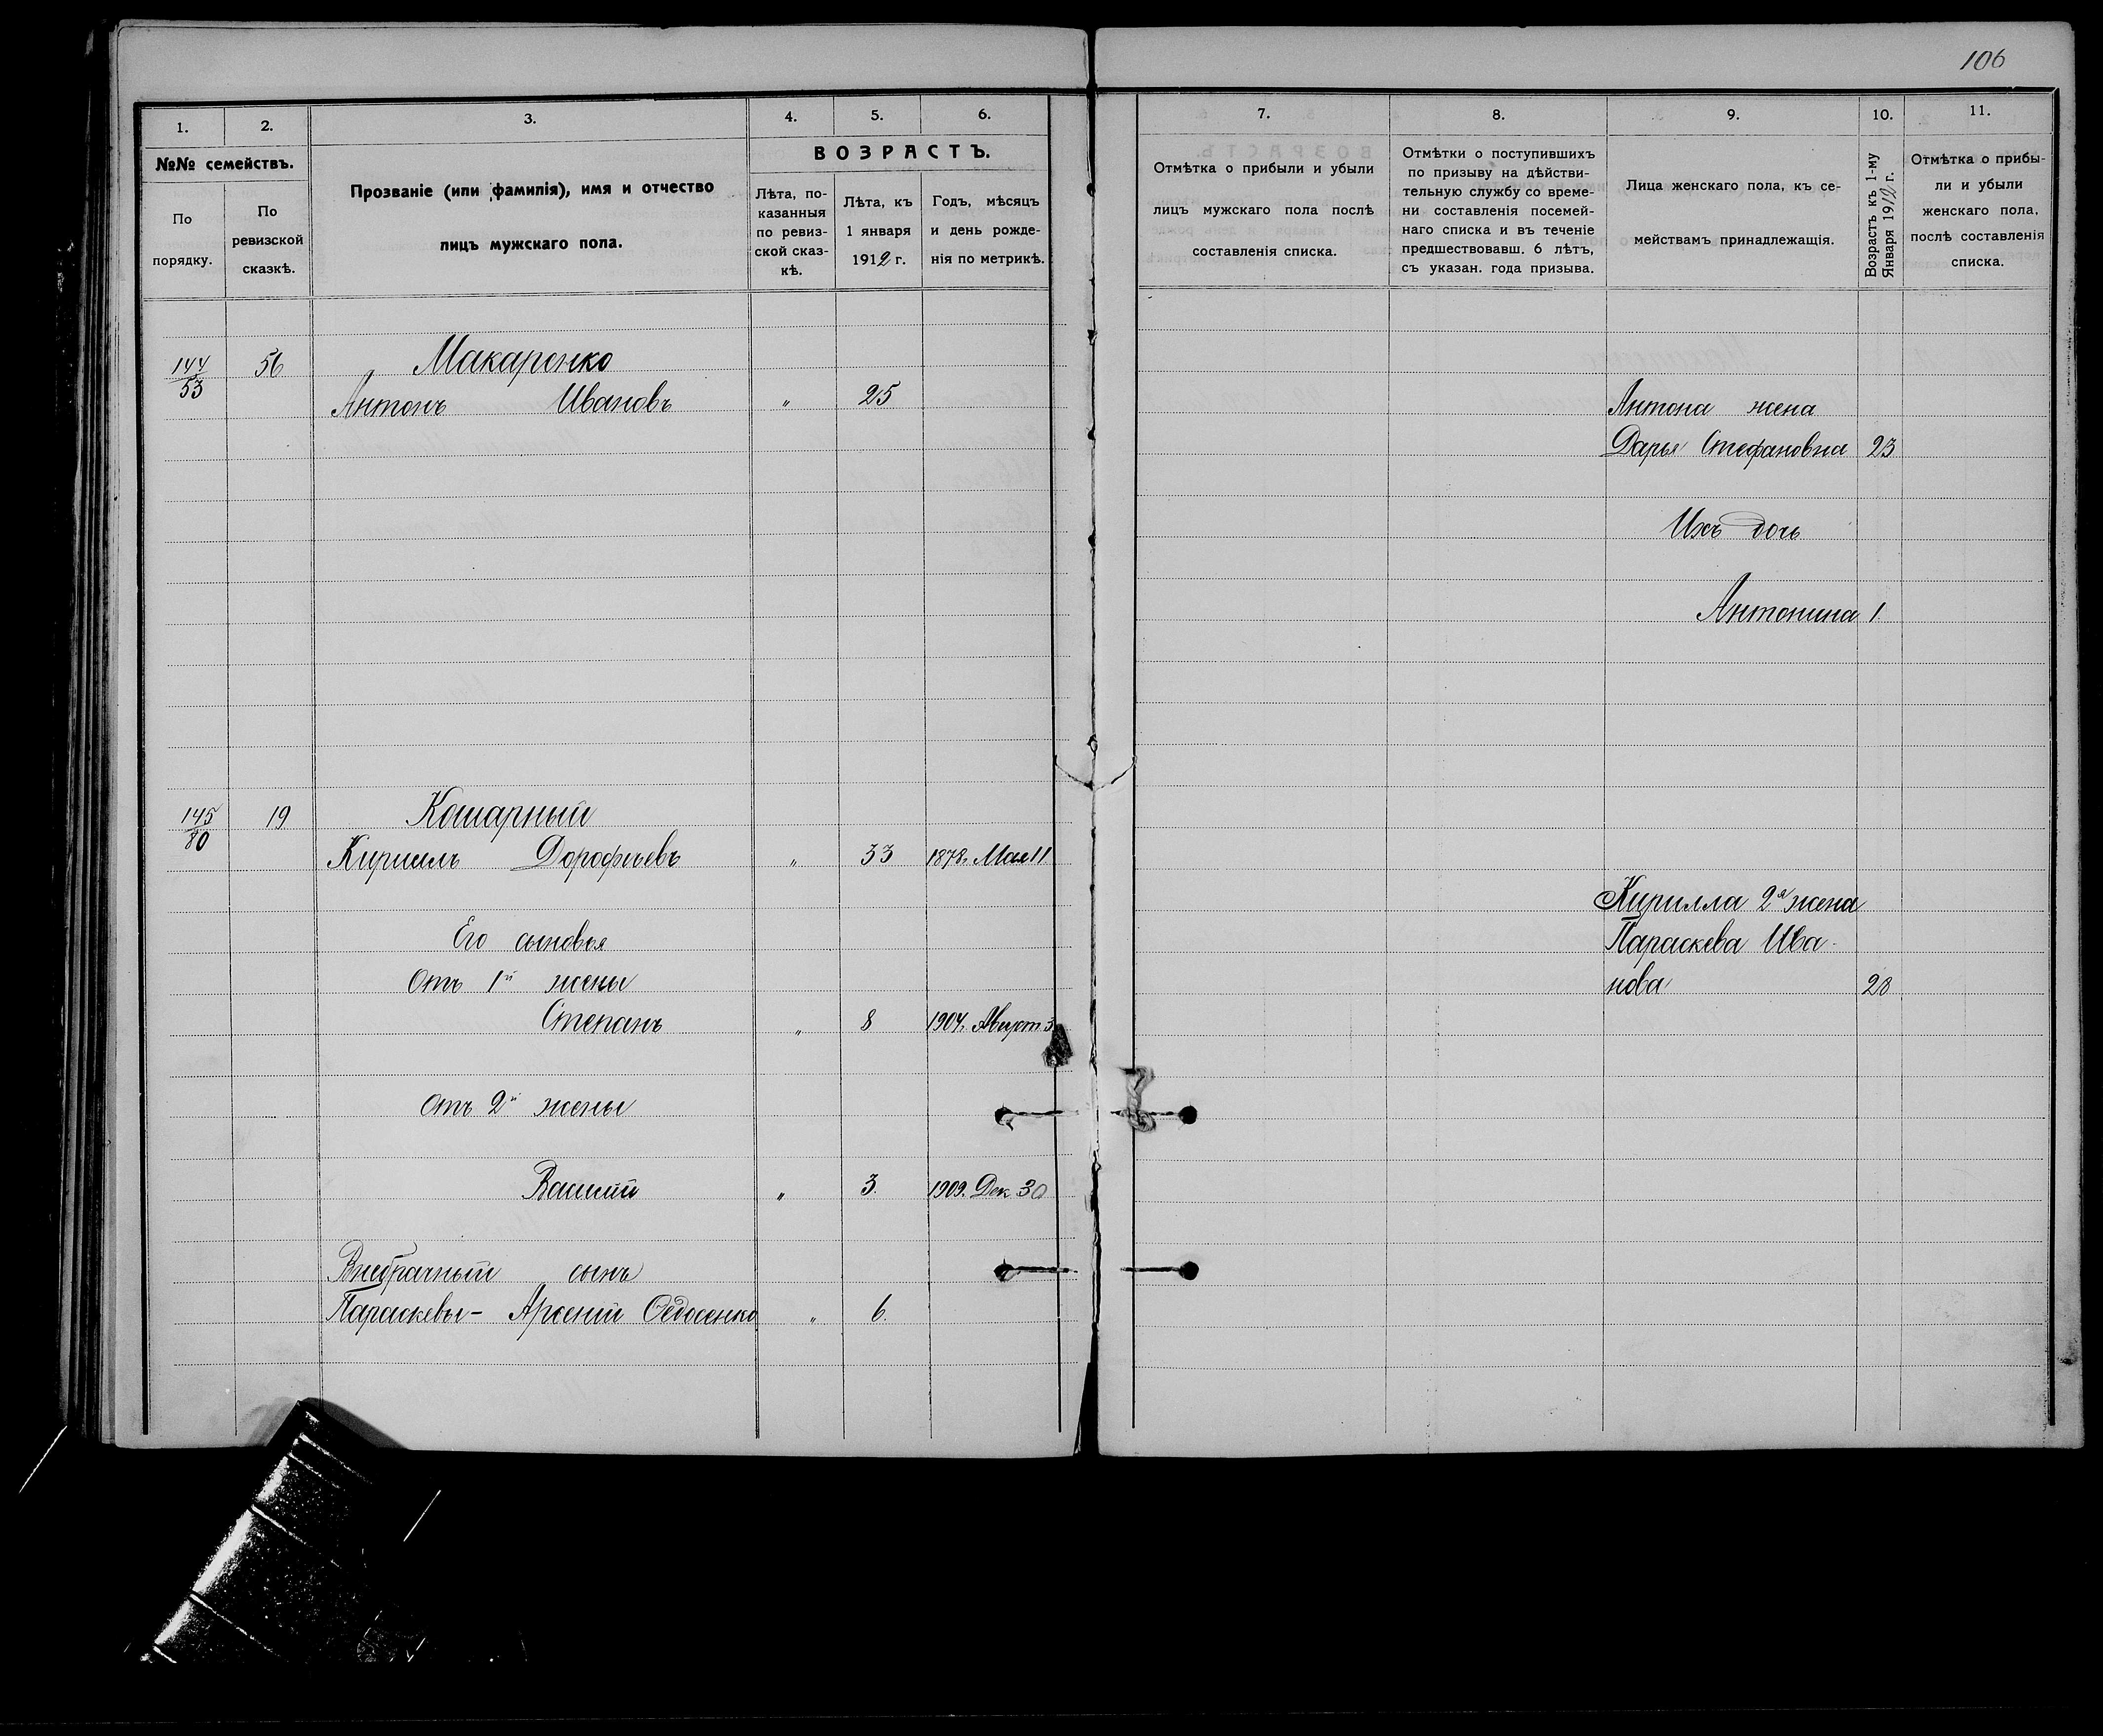 106
1. 2. 3. 4. 5. 6.
№№ семействъ.
По порядку.
По ревизской сказкѣ.
Прозваніе (или фамилія), имя и отчество
лицъ мужскаго пола.
ВОЗРАСТЪ.
Лѣта, по-
казанныя
по ревиз-
ской сказ-
кѣ.
Лѣта, къ
1 января
1912 г.
Годъ, мѣсяцъ
и день рожде-
нія по метрикѣ.
144/53 56 Макаренко
Антонъ Ивановъ " 25
145/80 19 Кошарный
Кириллъ Дорофѣевъ " 33 1878. Мая 11
Его сыновья
Отъ 1й жены
Степанъ " 8 1904. Август. 3
Отъ 2й жены
Василий " 3. 1909. Дек 30
Внебрачный сынъ
Параскевы- Арсений Ѳедосенко " 6.
7. 8. 9. 10. 11.
Отмѣтка о прибыли и убыли
лицъ мужскаго пола послѣ
составленія списка.
Отмѣтки о поступившихъ
по призыву на дѣйстви-
тельную службу со време-
ни составленія посемей-
наго списка и въ теченіе
предшествовавш. 6 лѣтъ,
съ указан. года призыва.
Лица женскаго пола, къ се-
мействамъ принадлежащія.
Возрастъ къ 1-му
Января 1912 г.
Отмѣтка о прибы-
ли и убыли
женскаго пола,
послѣ составленія
списка.
Антона жена
Дарья Стефановна 23
Ихъ дочь
Антонина 1.
Кирилла 2я жена
Параскева Ива-
нова 28